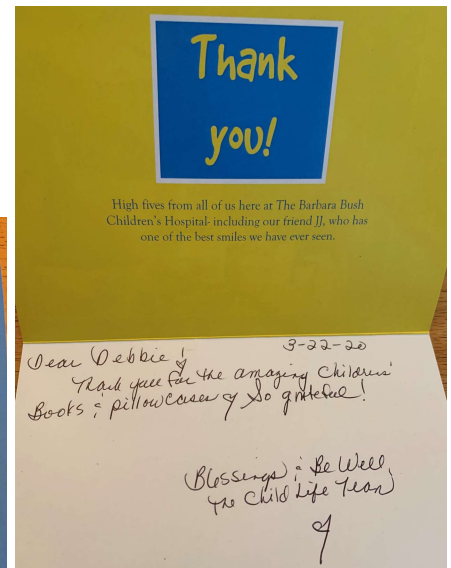 Thank
you!
High fives from all of us here at The Barbara Bush
Children's Hospital- including our friend JJ, who has
one of the best smiles we have ever seen.
3-22-20
Dear Debbie
Thank you for the amazing Childrens'
Books & pillowcases So grateful!
Blessings & Be Well,
The Child Life Team